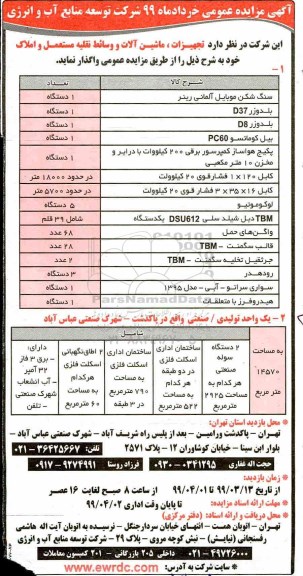 آگهی مزایده عمومی خردادماه ۹۹ شرکت توسعه منابع آب و انرژی
این شرکت در نظر دارد تجهیزات ، ماشین آلات و وسائط نقلیه مستعمل و املاک
خود به شرح ذیل را از طریق مزایده عمومی واگذار نماید.
۱ -
شرح کالا تعداد
سنگ شکن موبایل آلمانی رینر ۱ دستگاه
بلدوزر D37 ۱ دستگاه
بلدوزر D8 ۱ دستگاه
بیل کوماتسو PC60 ۱ دستگاه
پکیج هواساز کمپرسور برقی ۲۰۰ کیلووات با درایر و
مخزن ۱۰ متر مکعبی ۱ دستگاه
کابل ۱۲۰×۱ فشارقوی ۲۰ کیلوولت در حدود ۱۸۰۰۰ متر
کابل ۱۶×۳۵×۳ فشار قوی ۲۰ کیلوولت در حدود ۵۷۰۰ متر
لوکوموتیو ۵ دستگاه
TBM دبل شیلد سلی DSU612 یکدستگاه شامل ۳۹ قلم
واگن‌های حمل ۶۸ عدد
قالب سگمنت - TBM ۲۸ عدد
جرثقیل تخلیه سگمنت - TBM ۲ عدد
رودهدر ۳ دستگاه
سواری سراتو - آبی - مدل ۱۳۹۵ ۱ دستگاه
هیدروفرز با متعلقات ۱ دستگاه
۲ - یک واحد تولیدی / صنعتی واقع در پاکدشت - شهرک صنعتی عباس آباد
شامل
به مساحت
۱۴۵۷۰
متر مربع
۲ دستگاه
سوله
صنعتی
هر کدام
به مساحت
۲۹۲۵
متر مربع
ساختمان اداری
اسکلت فلزی
در دو طبقه
هر کدام
به مساحت
۵۲۲ مترمربع
ساختمان اداری
اسکلت فلزی
به مساحت
۷۹۰ مترمربع
در ۳ طبقه
۲ اطاق نگهبانی
اسکلت فلزی
هر کدام به
مساحت
۶۰ مترمربع
دارای:
- برق ۳ فاز
۳۲ آمپر
- آب انشعاب
شهرک صنعتی
- تلفن
محل بازدید استان تهران:
تهران - پاکدشت ورامین - بعد از پلیس راه شریف آباد - شهرک صنعتی عباس آباد -
بلوار ابن سینا - خیابان کشاورزان ۱۲ - پلاک ۲۵۷۱ تلفن: ۳۶۴۲۵۶۶۷-۰۲۱
حجت اله غفاری ۰۳۴۱۲۹۵-۰۹۳۰ فرزاد روستا ۹۲۷۴۹۹۱-۰۹۱۷
زمان بازدید:
از تاریخ ۹۹/۰۳/۱۳ الی ۹۹/۰۴/۰۱ از ساعت ۸ صبح لغایت ۱۶ عصر
مهلت ارائه اسناد مزایده: تا پایان وقت اداری ۹۹/۰۴/۰۲
محل دریافت و ارائه اسناد: (دفتر مرکزی)
تهران - اتوبان همت - انتهای خیابان سردارجنگل - نرسیده به اتوبان آیت اله هاشمی
رفسنجانی (نیایش) - نبش کوچه مروی - پلاک ۲۹ - شرکت توسعه منابع آب و انرژی
۴۹۷۲۶۰۰۰-۰۲۱ داخلی ۲۰۵ بازرگانی - ۲۰۱ کمیسیون معاملات
سایت شرکت به آدرس: www.ewrdc.com